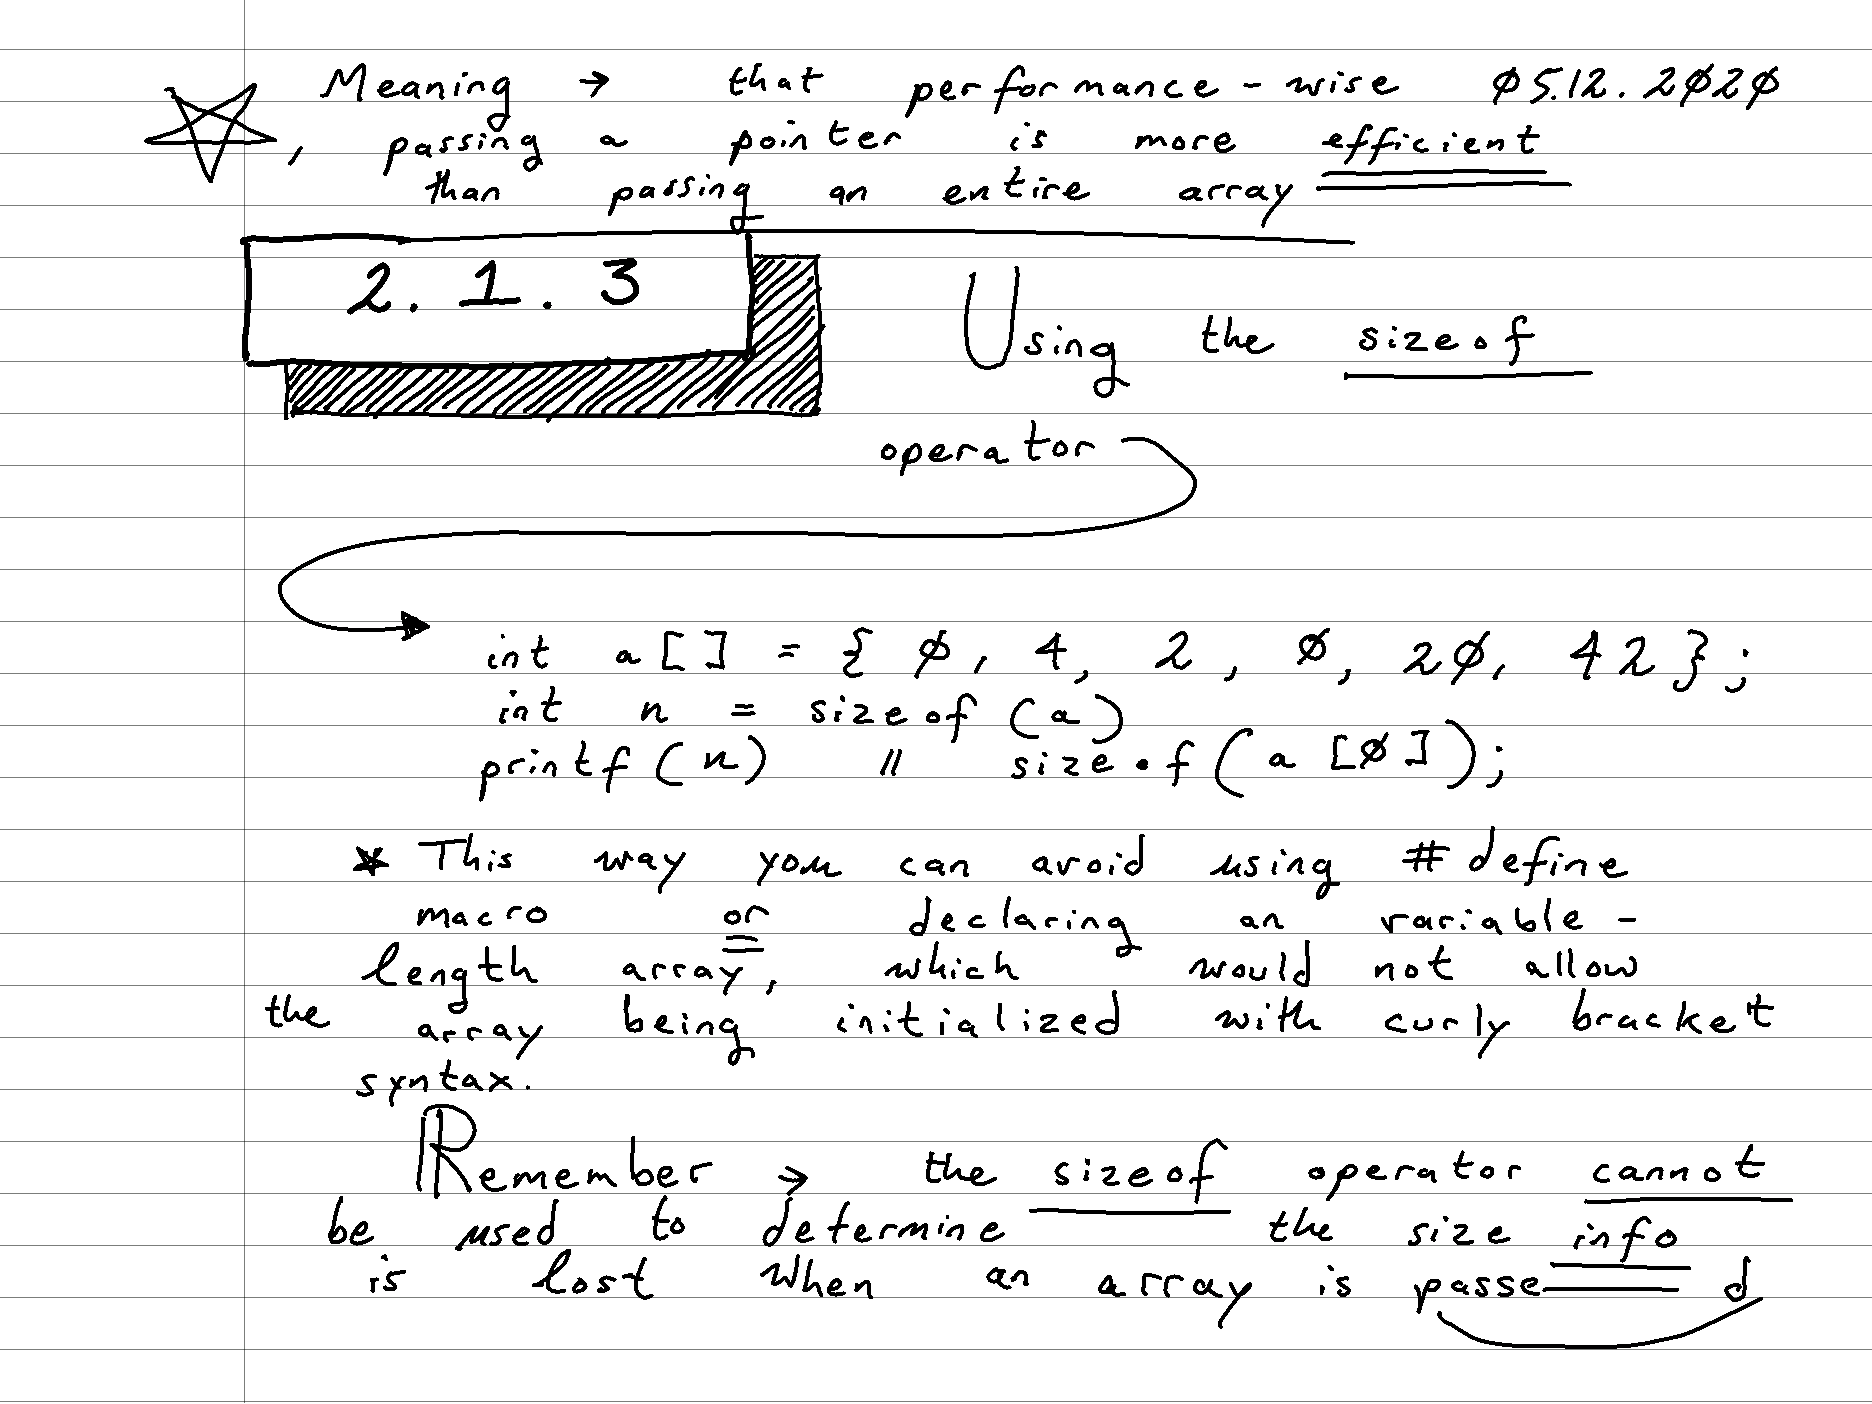 Meaning → that performance-wise 05.12.2020
, passing a pointer is more efficient
than passing an entire array
2.1.3
Using the sizeof
operator
int a[] = { 0, 4, 2, 0, 20, 42 };
int n = sizeof (a)
printf(n) // sizeof(a[0]);
* This way you can avoid using #define
macro or declaring an variable-
length array, which would not allow
the array being initialized with curly bracket
syntax.
Remember → the sizeof operator cannot
be used to determine the size info
is lost when an array is passed